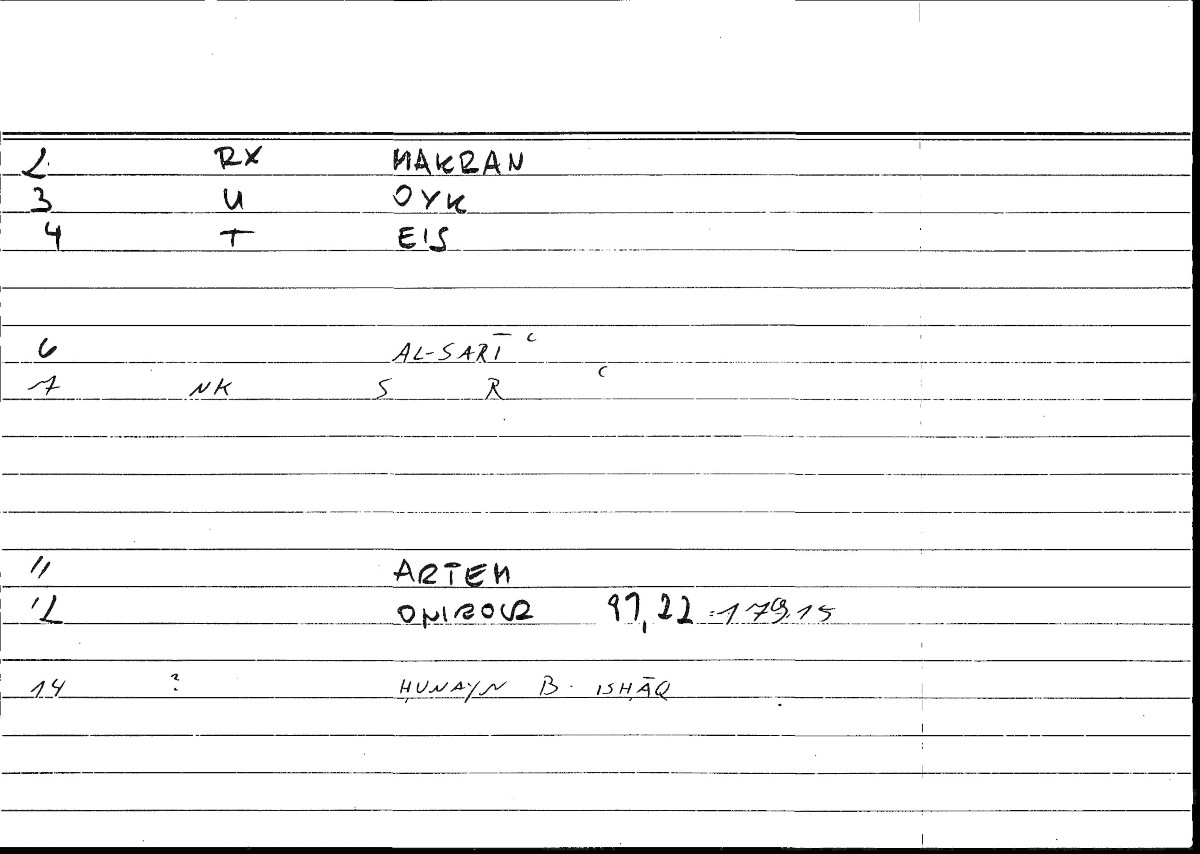 2 RX MAKRAN
3 U OYK
4 T EIS
6 AL-SARĪʿ
7 NK S R ʿ
11 ARTEM
12 ONIROCR 97,22 = 179.15
14 ? ḤUNAYN B. ISḤĀQ